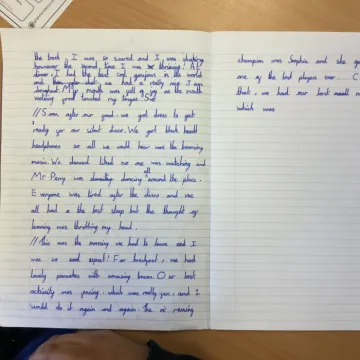 the back. I was so scared and I was shaking
however the second time I was thriving! At
dinner, I had the best cod goujons in the world
and then after that we had a really nice
doughnut. My mouth was as the
melting goo touched my tongue.
// Soon after our good we got dress to get
ready for our silent disco. We got black head
headphones so all we could hear was the booming
music. We danced liked no one was watching and
Mr Perry was dancing all around the place.
Everyone was tired after the disco and we
all had a the best sleep but the thought of
leaving was throbbing my head.
// This was the morning we had to leave and I
was so said upset! For breakfast, we had
lovely pancakes with amazing bacon. Our last
activity was which was really fun, and I
would do it again and again. The
champion was Sophia and she
one of the best players ever....
that, we had our last meal
which was